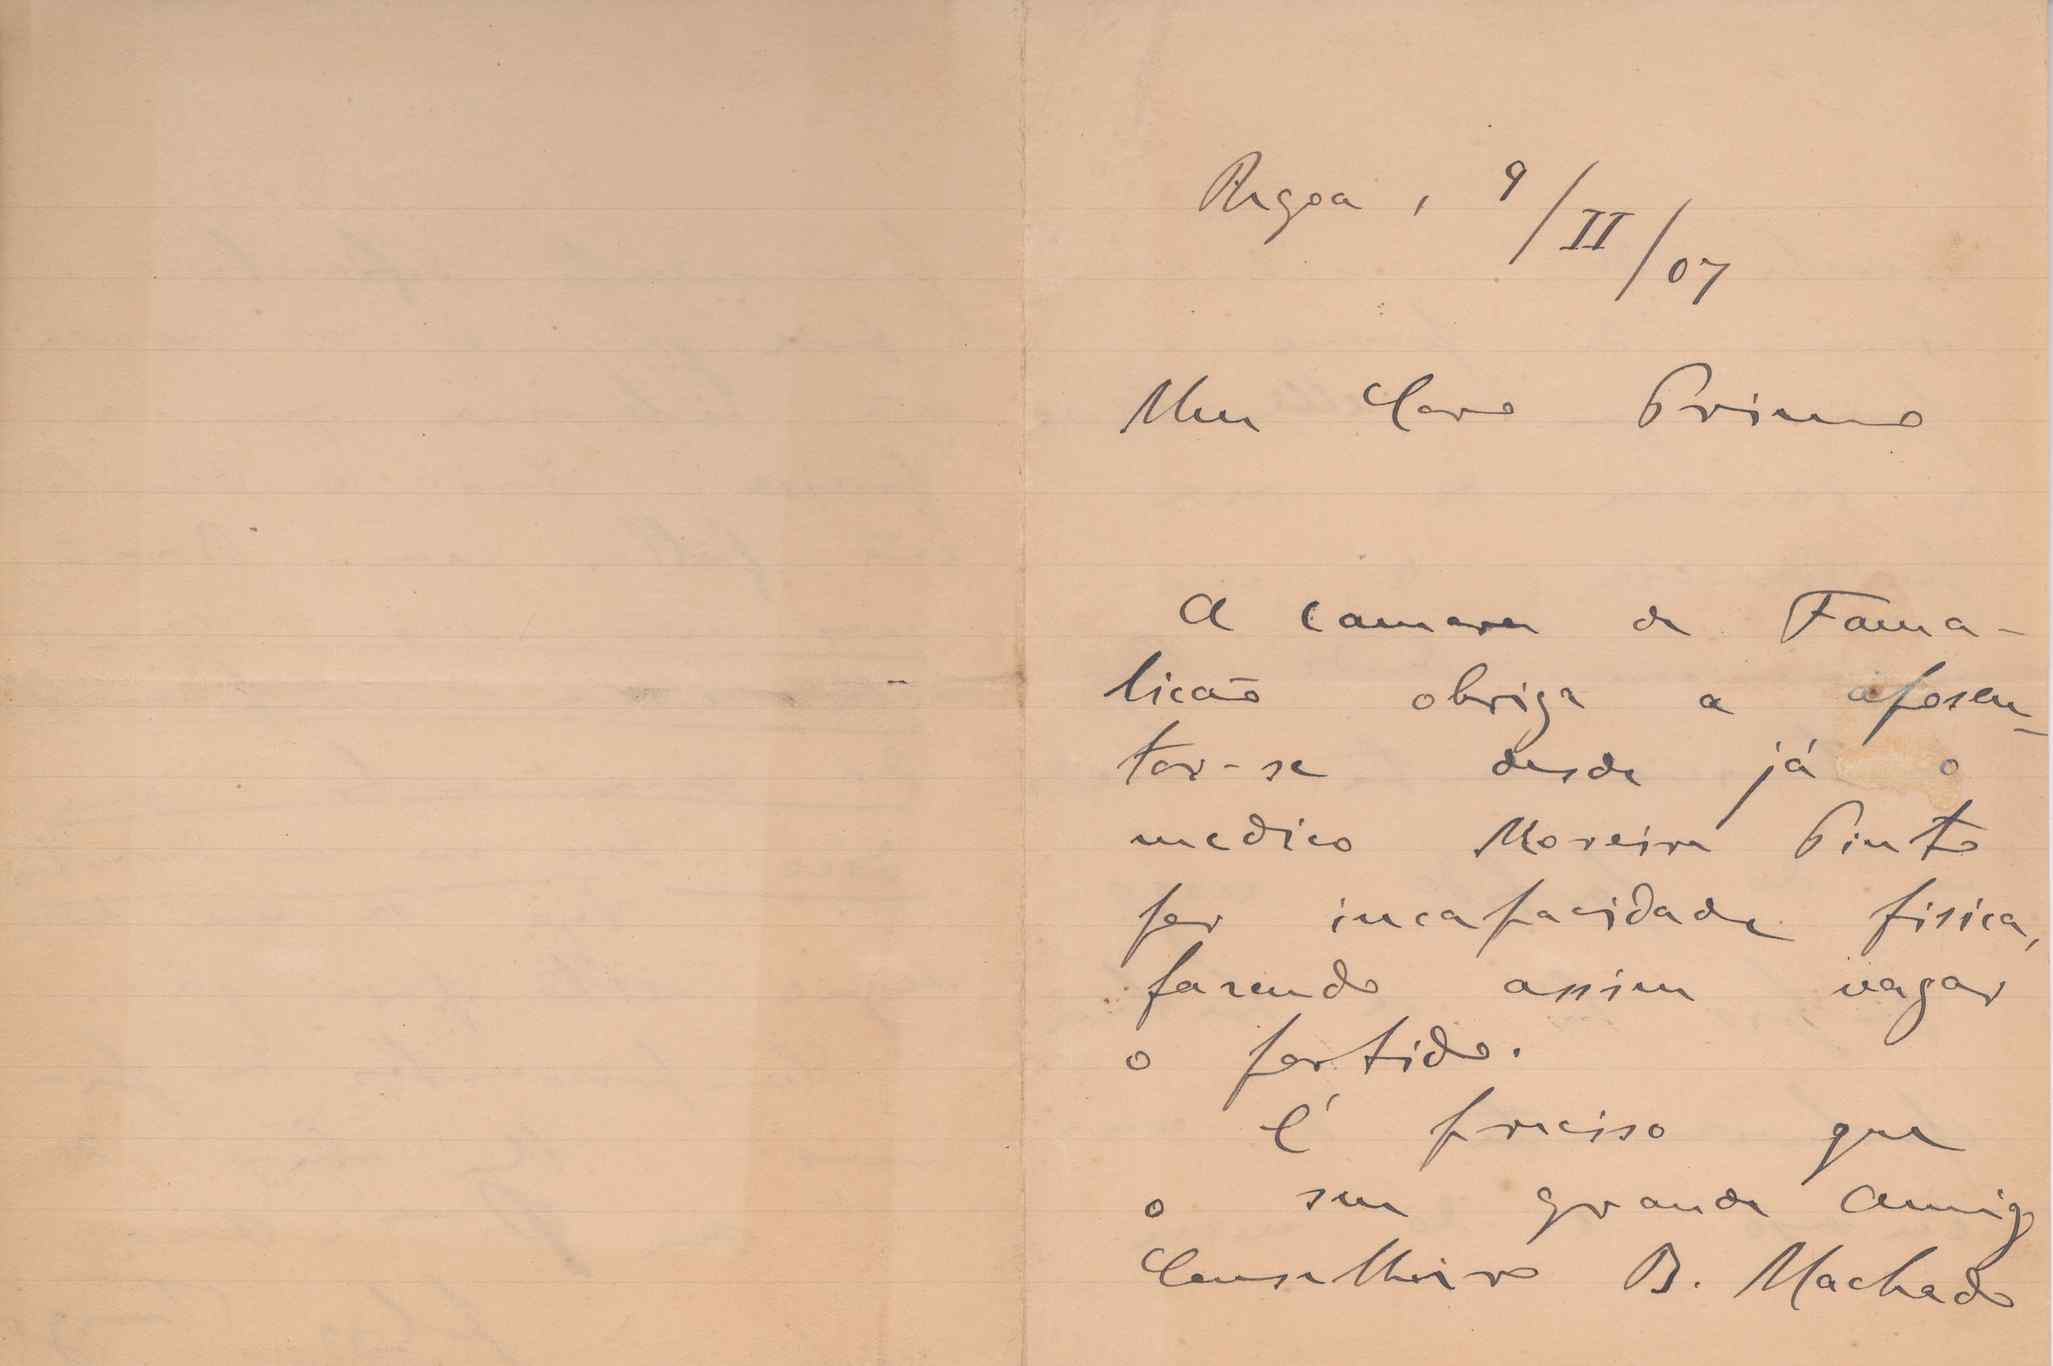 Regoa, 9/II/07
Meu Caro Primo
A camara de Fama-
licão obriga a aposen-
tar-se desde já o
medico Moreira Pinto
por incapacidade fisica,
fazendo assim vagar
o partido.
É preciso que
o seu grande amigo
Conselheiro B. Machado